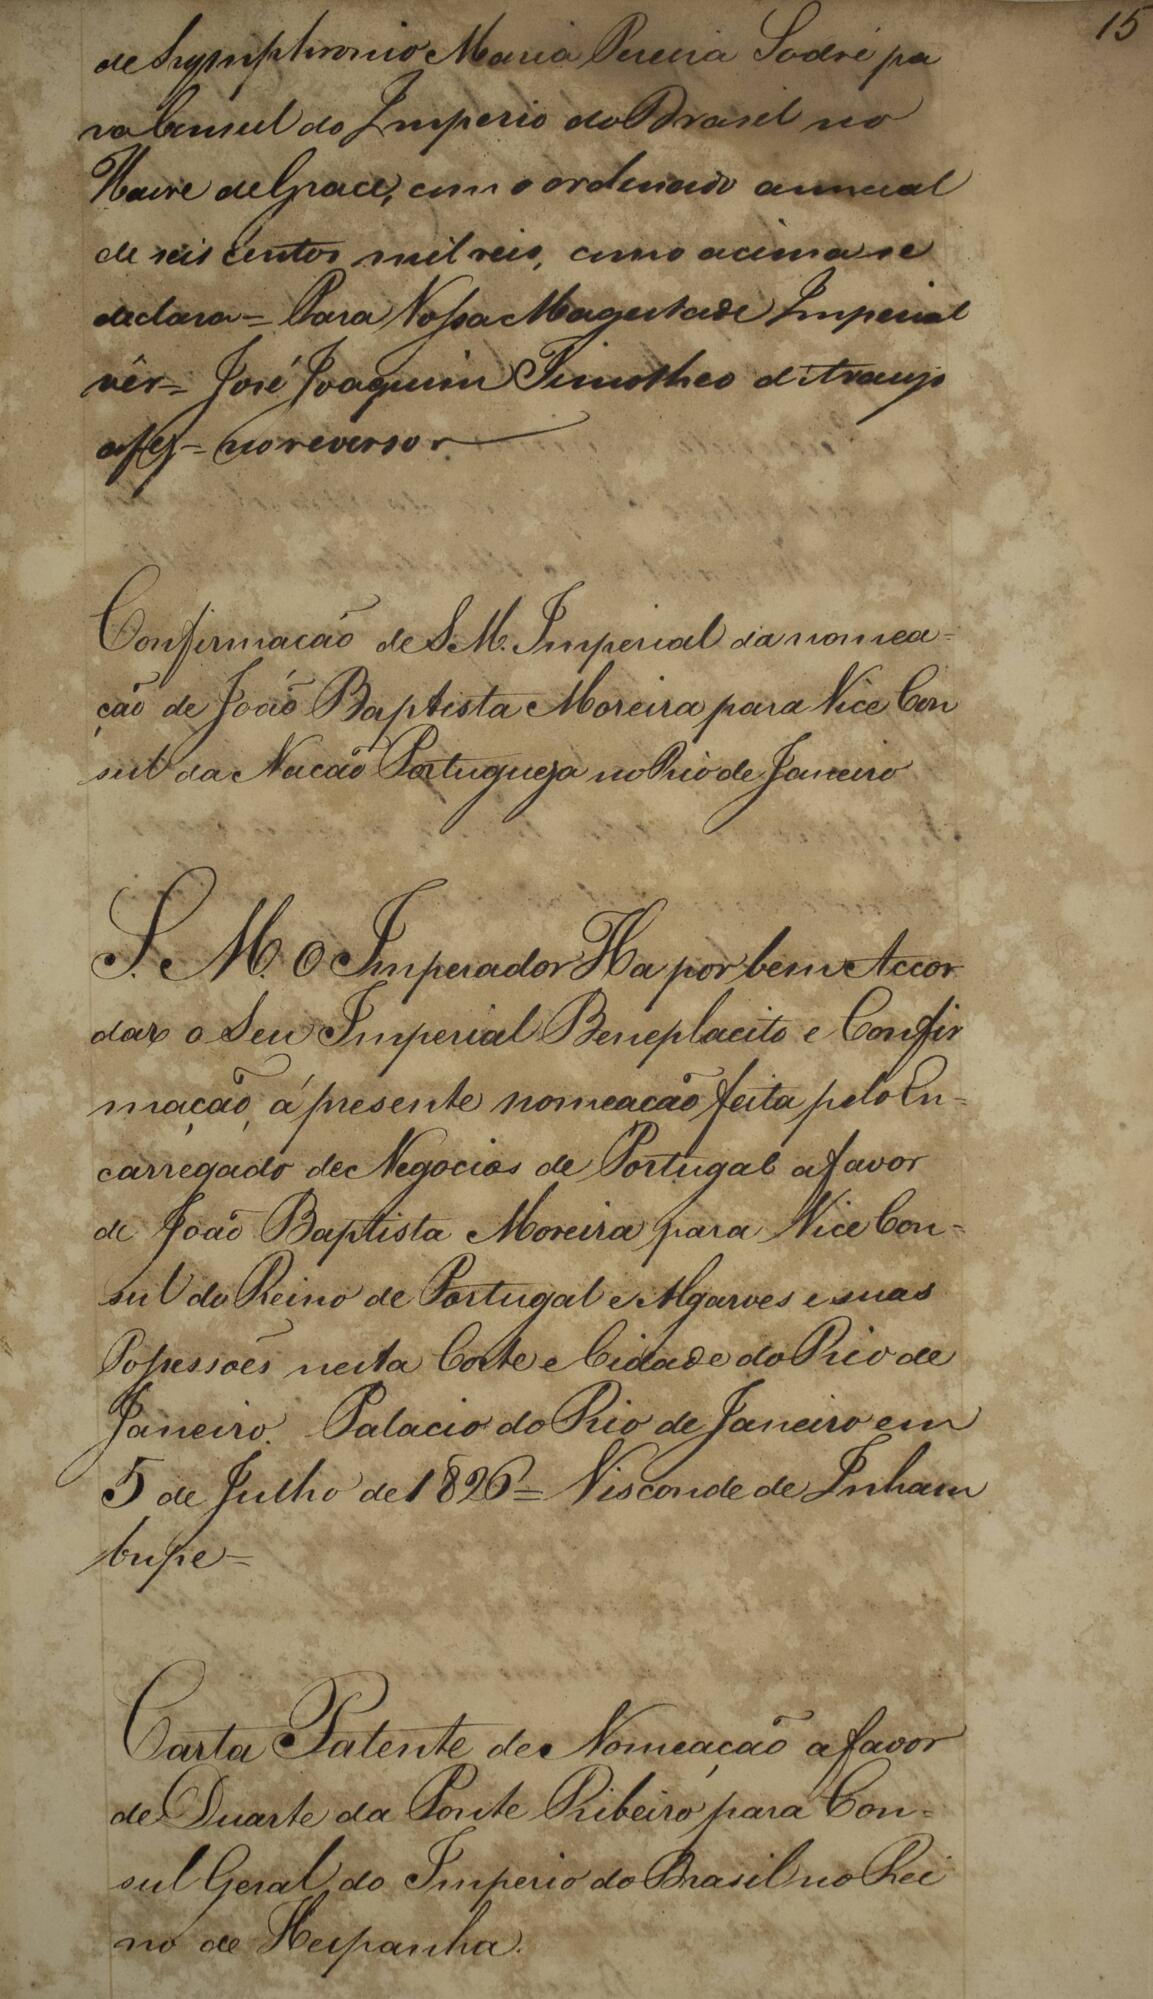 15
de Symphronio Maria Pereira Sodré pa
ra Consul do Imperio do Brasil no
Havre de Grace, com o ordenado annual
de seis centos mil reis, como acima se
declara = Para Vossa Magestade Imperial
vêr = José Joaquim Timotheo d'Araujo
a fez = no reverso
Confirmação de S. M. Imperial da nomea=
ção de João Baptista Moreira para Vice Con
sul da Nação Portugueza no Rio de Janeiro
S. M. O Imperador Ha por bem Accor
dar o Seu Imperial Beneplacito e Confir
mação, á presente nomeação feita pelo En=
carregado de Negocios de Portugal a favor
de João Baptista Moreira para Vice Con=
sul do Reino de Portugal e Algarves e suas
Possessoẽs nesta Corte e Cidade do Rio de
Janeiro. Palacio do Rio de Janeiro em
5 de Julho de 1826 = Visconde de Inham
bupe =
Carta Patente de Nomeação a favor
de Duarte da Ponte Ribeiro para Con=
sul Geral do Imperio do Brasil no Rei
no de Hespanha.